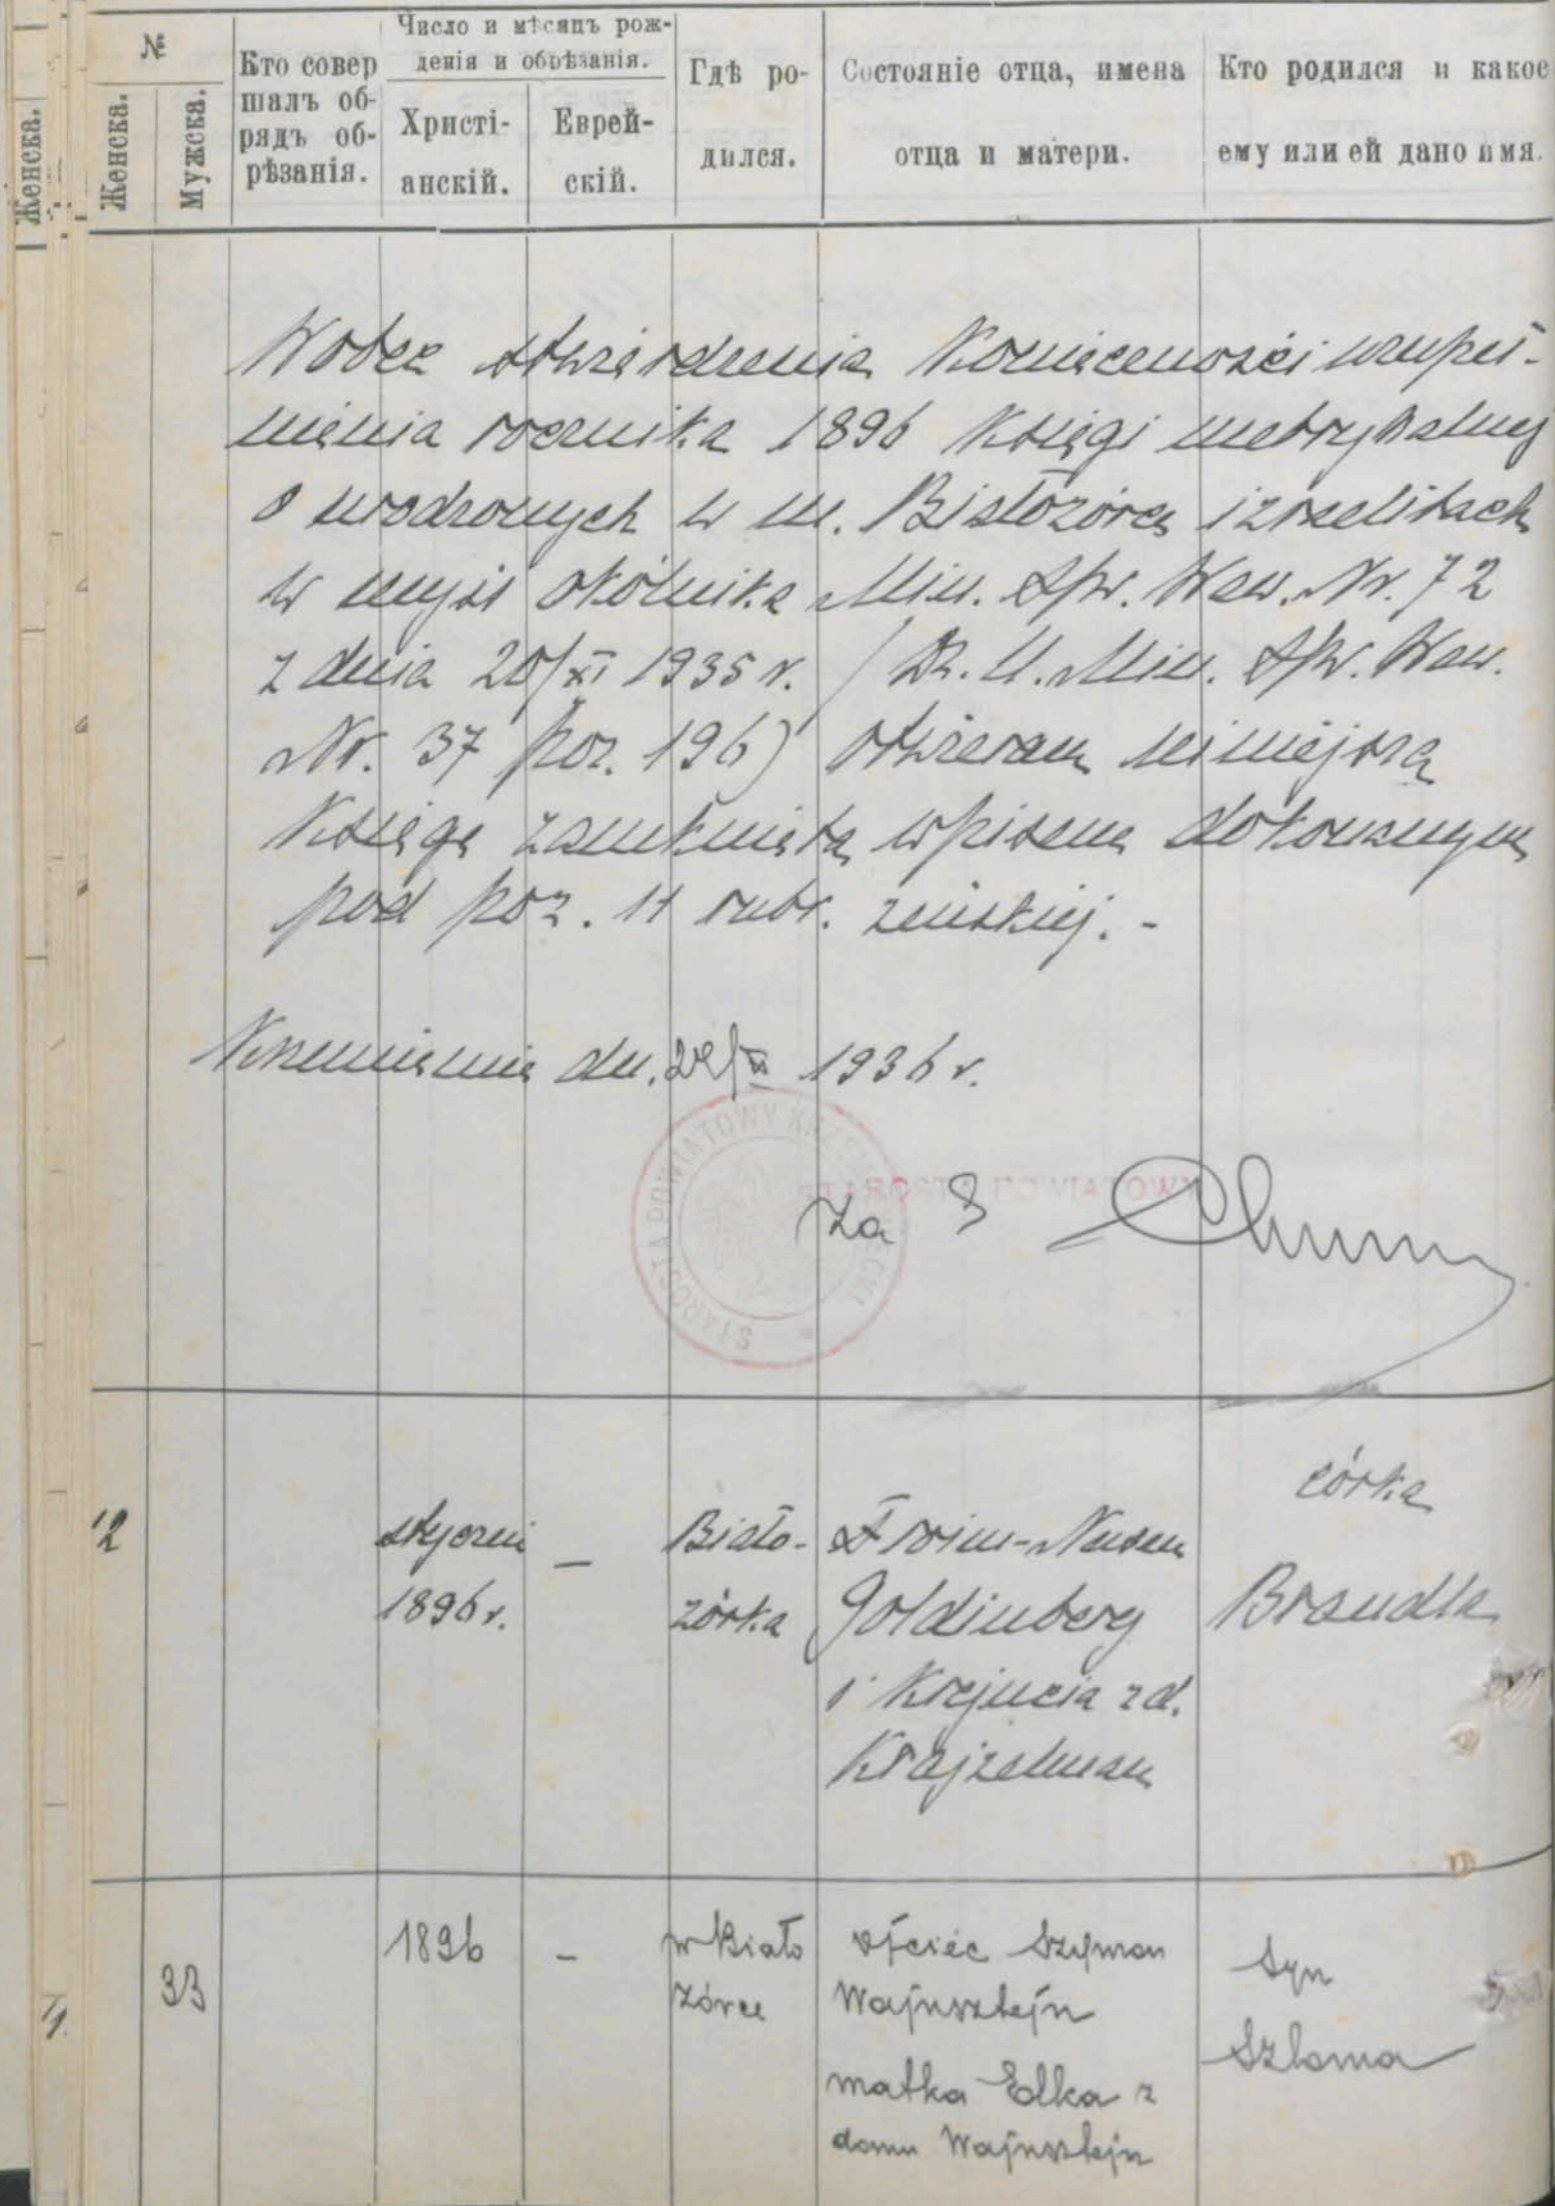 Женска.
№
Женска.
Мужска.
Кто совер
шалъ об-
рядъ об-
рѣзанія.
Число и мѣсяцъ рож-
денія и обрѣзанія.
Христі-
анскій.
Еврей-
скій.
Гдѣ ро-
дился.
Состояніе отца, имена
отца и матери.
Кто родился и какое
ему или ей дано имя.
Wobec stwierdzenia konieczności uzupeł-
nienia rocznika 1896 Księgi metrykalnej
o urodzonych w m. Białozórce izraelitach
w myśl okólnika Min. Spr. Wew. Nr. 72
z dnia 20/XI 1935 r. / Dz. U. Min. Spr. Wew.
Nr. 37 poz. 196) otwieram niniejszą
Księgę zamkniętą wpisem dokonanym
pod poz. 11 rubr. żeńskiej. -
Krzemieniec dn. 1936 r.
STAROSTA POWIATOWY KRZEMIENIECKI
STAROSTA POWIATOWY
Za S
12
styczeń
1896 r.
—
Biało-
zórka
Froim-Nusen
Goldinberg
i Krejncia z d.
Krajzelman
córka
Brandla
33
1896
–
w Biało
zórce
ojciec Szymon
Wajnsztejn
matka Elka z
domu Wajnsztejn
Syn
Szloma